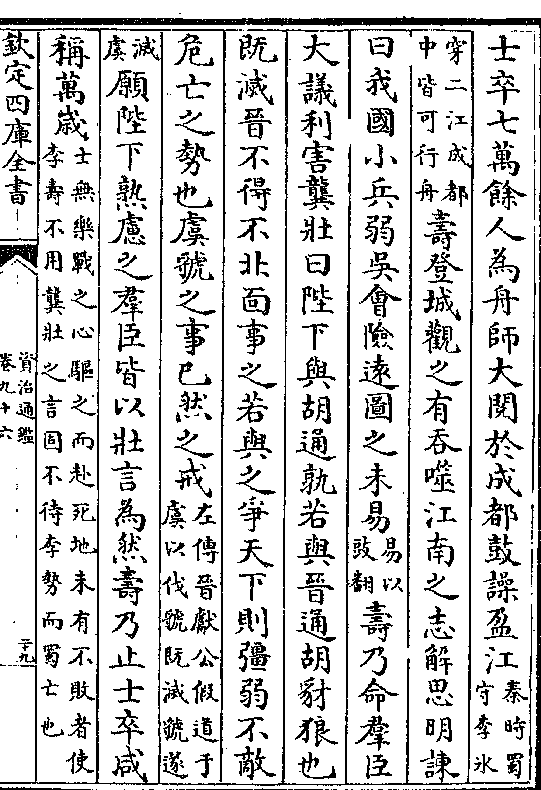 士卒七萬餘人為舟師大閱於成都鼓譟盈江秦時蜀守李氷
穿二江成都中皆可行舟壽登城觀之有吞噬江南之志解思明諫
曰我國小兵弱吳會險遠圖之未易易以豉翻壽乃命羣臣
大議利害龔壯曰陛下與胡通孰若與晉通胡豺狼也
既滅晉不得不北面事之若與之爭天下則彊弱不敵
危亡之勢也虞虢之事已然之戒左傳晉獻公假道于虞以伐虢既滅虢遂
滅虞願陛下熟慮之羣臣皆以壯言為然壽乃止士卒咸
稱萬歲士無樂戰之心驅之而赴死地未有不敗者使李壽不用龔壯之言固不待李勢而蜀亡也
欽定四庫全書
資治通鑑
卷九十六
二十九